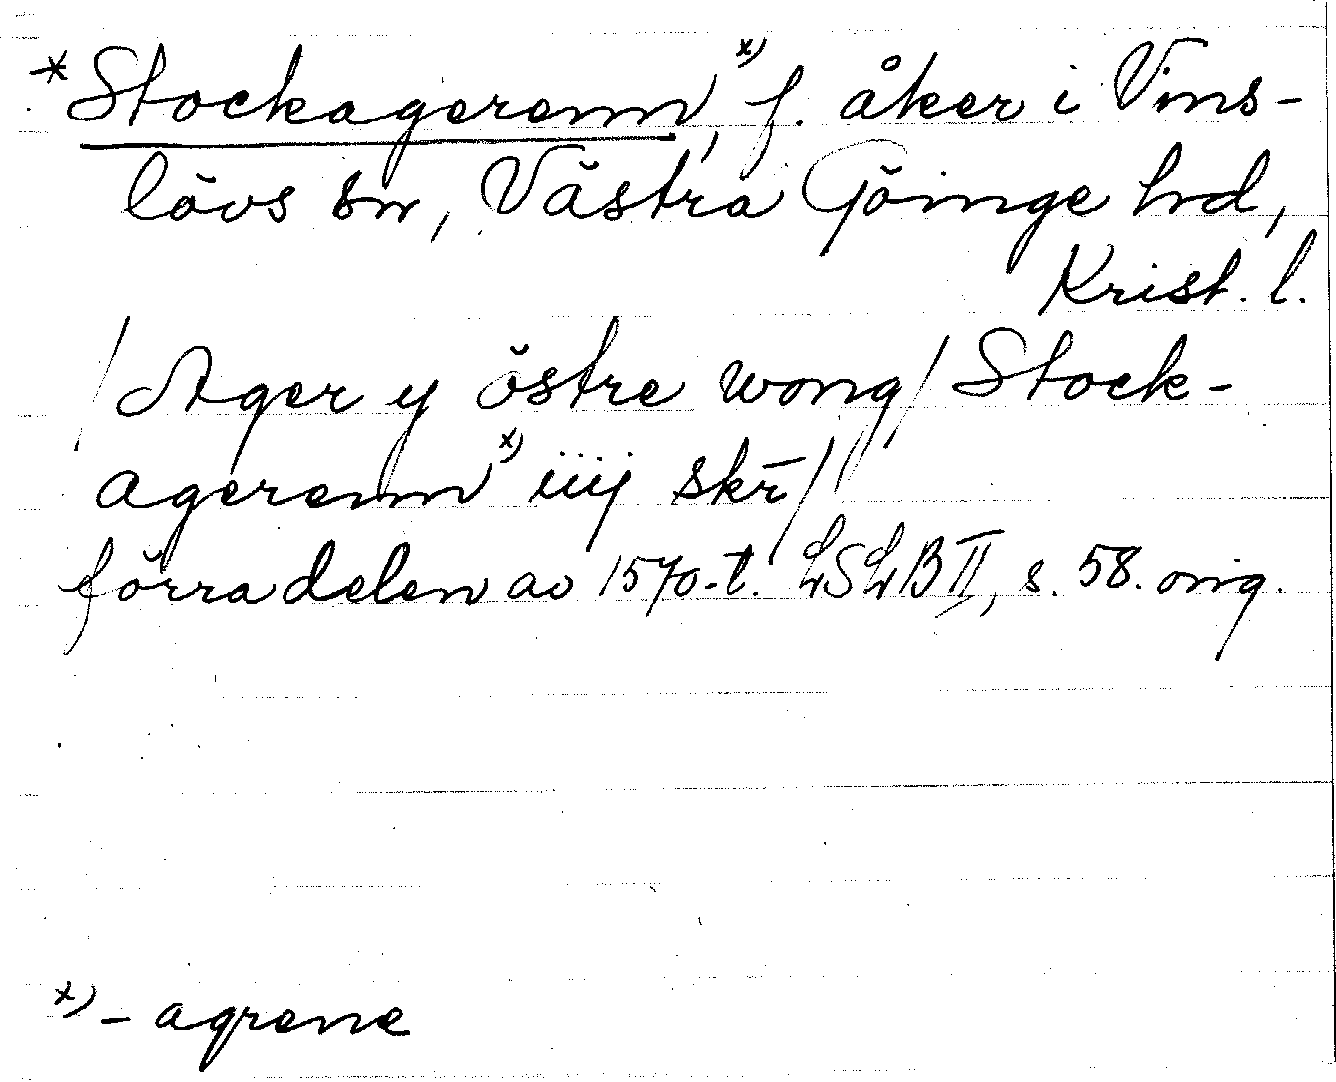 *Stockagerenn,ˣ⁾ f. åker i Vins-
lövs sn, Västra Göinge hrd,
Krist. l.
/Ager y östre wong/ Stock-
agerennˣ⁾ iiij skr̄//
förra delen av 1570-t. LSLB II, s. 58. orig.
ˣ⁾ - agrene